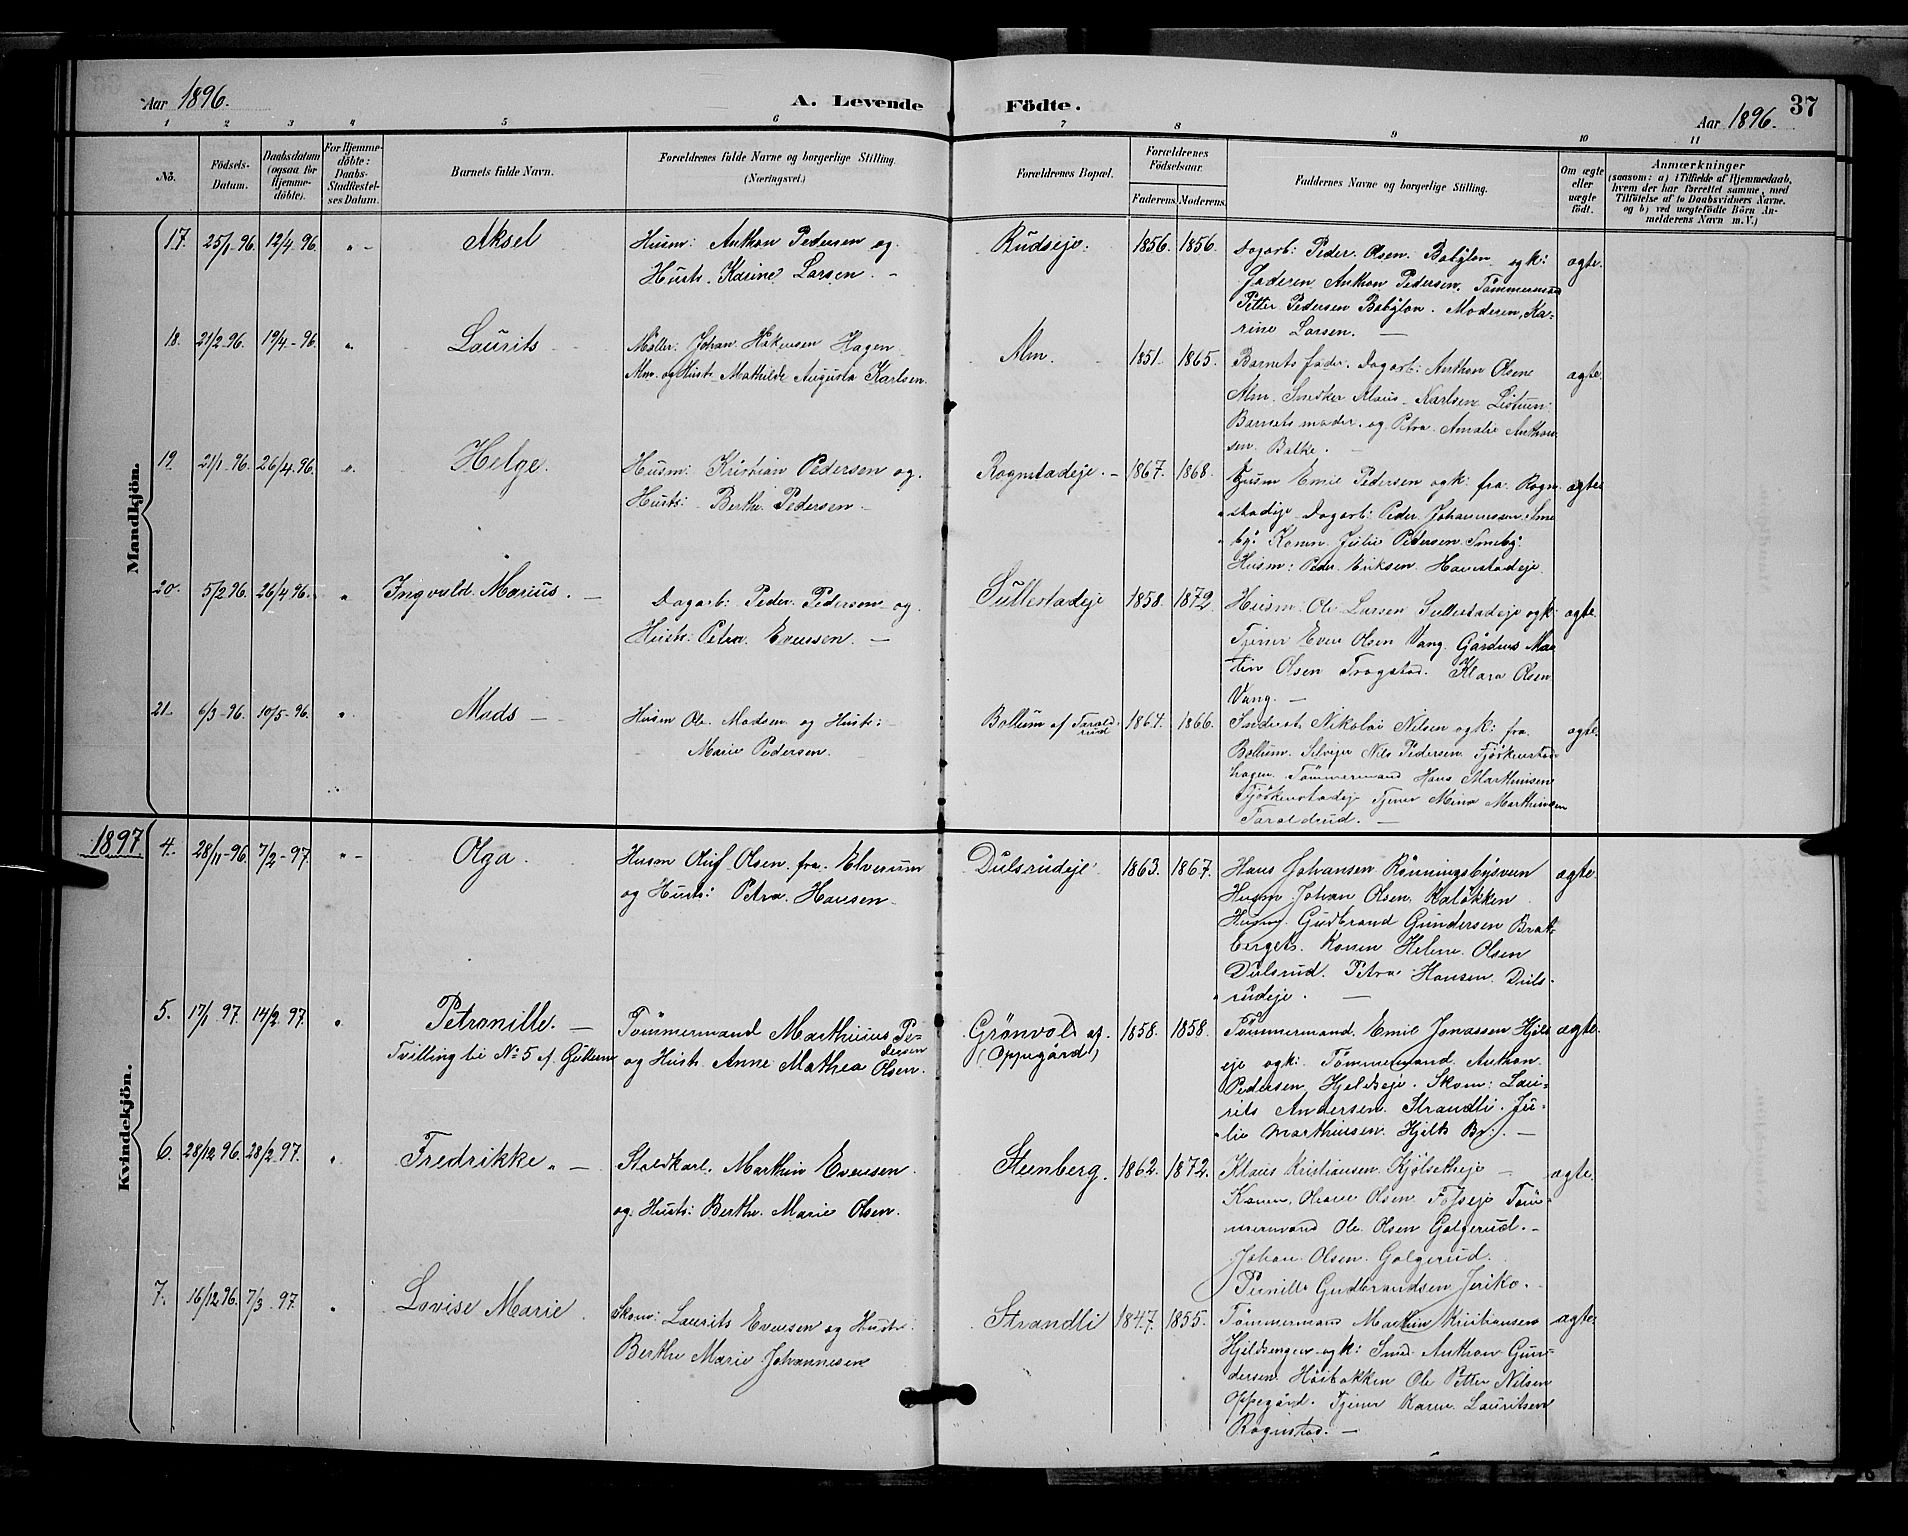 Aar 1896. A. Levende Födte. Aar 1896. 37
1 2 3 4 5 6 7 8 9 10 11
No.
Födsels-
Datum.
Daabsdatum
(ogsaa for
Hjemme-
döbte).
For Hjemme-
döbte:
Daabs-
Stadfæstel-
ses Datum.
Barnets fulde Navn.
Forældrenes fulde Navne og borgerlige Stilling.
(Næringsvei.)
Forældrenes Bopæl.
Forældrenes
Födselsaar.
Faderens. Moderens.
Faddernes Navne og borgerlige Stilling.
Om ægte
eller
uægte
født.
Anmærkninger
(saasom: a) i Tilfælde af Hjemmedaab,
hvem der har forrettet samme, med
Tilföielse af to Daabsvidners Navne,
og b) ved uægtefödte Börn An-
melderens Navn m. V.)
Mandkjön.
17. 25/1-96. 12/4 96. " - Aksel
Husm: Anthon Pedersen og
Hustr. Karine Larsen. -
Rudseje. 1856. 1856.
Dagarb: Peder Olsen Babÿlon ogk:
Faderen Anthon Pedersen. Tömmermand
Petter Pedersen Babÿlon. Moderen, Ka-
rine Larsen. -
ægte.
18. 21/2-96. 19/4-96. " Laurits
Møller: Johan Håkensen Hagen
Alm. og Hustr. Mathilde Augusta Karlsen.
Alm. 1851. 1865.
Barnets fader. Dagarb: Anthon Olsen
Alm. Snedker Klaus Karlsen Listuen.
Barnets moder. og Petra Amalie Anthon
sen. Balke. -
ægte.
19. 21/1-96. 26/4 96. " Helge.
Husm: Kristian Pedersen og
Hustr: Berthe Pedersen -
Rognstadeje. - 1867. 1868.
Husm Emil Pedersen ogk: fra Rogn
stadeje Dagarb: Peder Johannessen Sme
by. Konen Julie Pedersen Smeby.
Husm: Peder Eriksen Haverstadeje.
ægte
20. 5/2 96. 26/4 96. " Ingvald Marius. -
Dagarb: Peder Pedersen og
Hustr: Petra Evensen. -
Sullestadeje 1858. 1872.
Husm: Ole Larsen Sullestadeje ogk:
Tjener Even Olsen Vang. Gårdens Mar
tin Olsen Trogstad. Klara Olsen
Vang. -
ægte.
21. 6/3-96. 10/5-96. " Mads -
Husm Ole Madsen og Hustr:
Marie Pedersen.
Bollum af Tarald-
rud 1864. 1866.
Inderst Nikolai Nilsen ogk: fra
Bollum. Selvejer Nils Pedersen Fjöskenstad
hagen. Tömmermand Hans Marthinsen
Fjöskenstadeje Tjener Mina Marthinsen
Taraldrud. -
ægte.
1897
Kvindekjön.
4. 28/11-96. 7/2-97. " - Olga.
Husm Oluf Olsen fra Elverum
og Hustr: Petra Hansen.
Dulsrudeje. 1863. 1867.
Hans Johansen Rönningsbÿsveen
Husm Johan Olsen Kalökken
Husm: Gudbrand Gundersen Brat-
bergets. Konen Helene Olsen
Dulsrud. Petra Hansen Duls-
rudeje. -
ægte.
5. 17/1 97. 14/2 97. " Petronille. -
Tvilling til No 5 af Gutterne
Tömmermand Marthinius Pe-
dersen
og Hustr. Anne Mathea Olsen.
Grönvold af
(Oppegård) 1858. 1858.
Tömmermand. Emil Jonassen Hjels
eje ogk: Tömmermand Anthon
Pedersen, Hjeldseje. Skom: Lau-
rits Andersen. Strandli. Ju-
lie Marthinsen. Hjells Br. -
ægte.
6. 28/12 96. 28/2 97. " Fredrikke. -
Staldkarl. Marthin Evensen
og Hustr: Berthe Marie Olsen.
Stenberg. 1862. 1872.
Klaus Kristiansen Kjölsetheje -
Konen Oleane Olsen Fosseje Töm-
mermand Ole Olsen Galgerud. -
Johan Olsen Galgerud.
Pernille Gudbrandsen Jeriko. -
ægte.
7. 16/12 96. 7/3-97. " Lovise Marie.
Skom: Laurits Evensen og Hustr:
Berthe Marie Johannesen
Strandli 1847. 1855.
Tömmermand Marthin Kristiansen
Hjeldsengen ogk: Smed Anthon Gun-
dersen Höibakken Ole Petter Nilsen
Oppegård. Tjener Karen Lauritsen
Rognstad. -
ægte